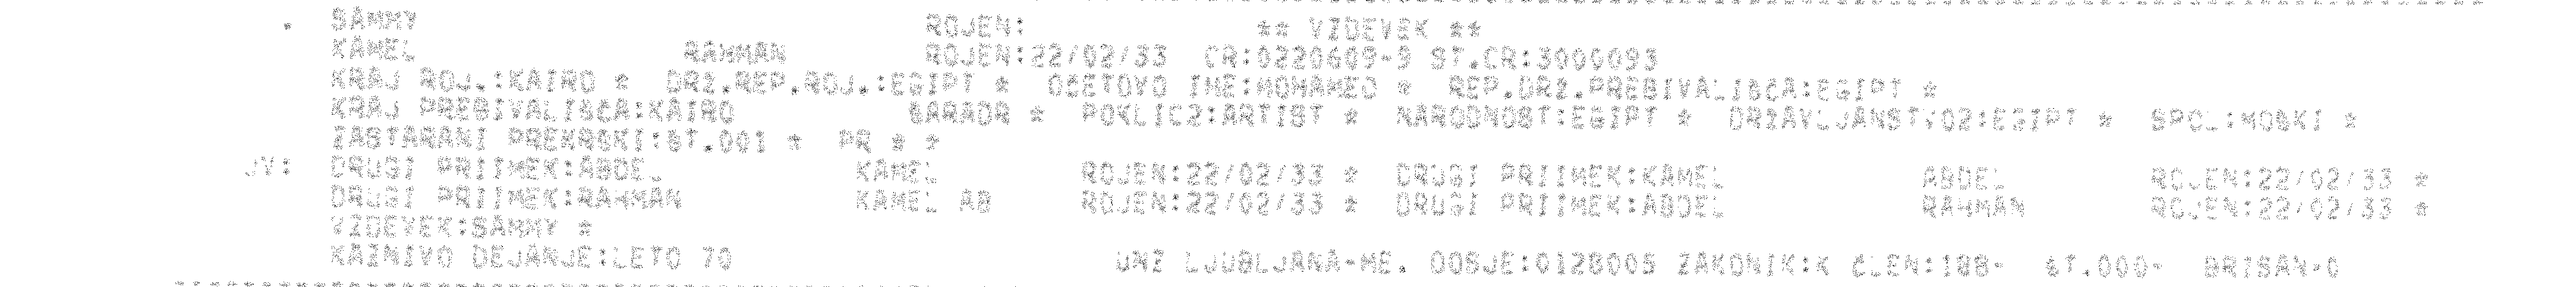 . SAMMY ROJEN: ** VIDEVEK **
KAMEL RAHMAN ROJEN:22/02/33 CR:0220609-9 ST.CR:3000093
KRAJ ROJ.:KAIRO * DRZ.REP.ROJ.:EGIPT * OCETOVO IME:MOHAMED * REP.DRZ.PREBIVALISCA:EGIPT *
KRAJ PREBIVALISCA:KAIRO BARADR * POKLIC2:ARTIST * NARODNOST:EGIPT * DRZAVLJANSTVO2:EGIPT * SPOL:MOSKI *
ZASTARANI PREKRSKI:ST.001 * PR * *
JV: DRUGI PRIIMEK:ABDEL KAMEL ROJEN:22/02/33 * DRUGI PRIIMEK:KAMEL ABDEL ROJEN:22/02/33 *
DRUGI PRIIMEK:RAHMAN KAMEL AB ROJEN:22/02/33 * DRUGI PRIIMEK:ABDEL RAHMAN ROJEN:22/02/33 *
VIDEVEK:SAMMY *
KAZNIVO DEJANJE:LETO 70 UNZ LJUBLJANA-ME. ODSJE:0128005 ZAKONIK:K CLEN:188- ST.000- BRISAN-0